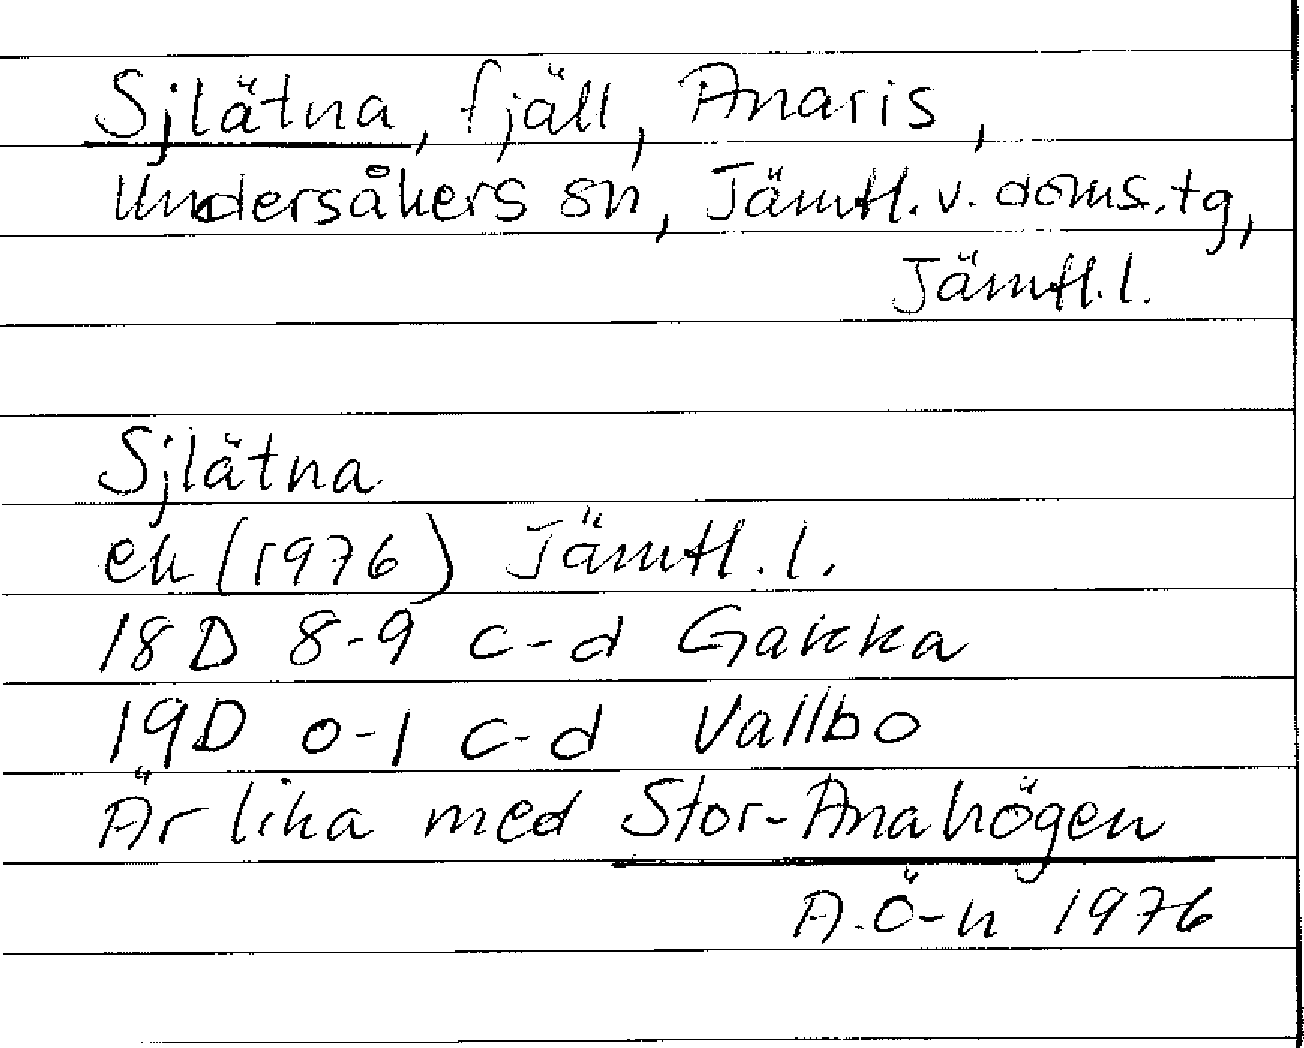 Sjlätna, fjäll, Anaris,
Undersåkers sn, Jämtl. v. doms.tg,
Jämtl. l.
Sjlätna
ek (1976) Jämtl. l.
18D 8-9 c-d Gakka
19D 0-1 c-d Vallbo
Är lika med Stor-Anahögen
A.Ö-n 1976